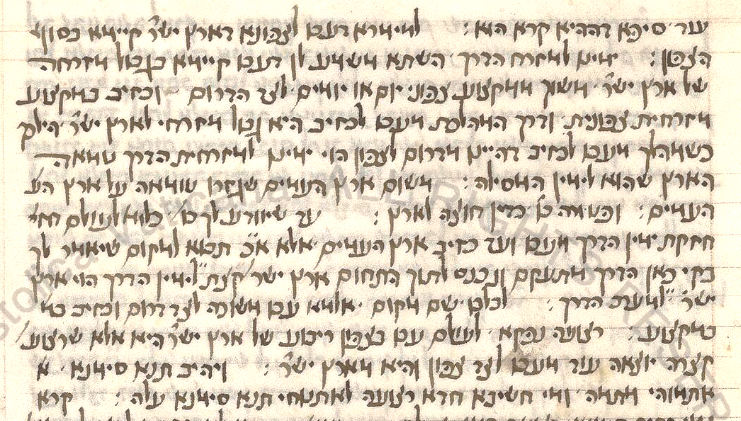 עד סיפא דההיא קרא הוא : למימרא דעכו לצפונא דארץ ישר' קיימא בסוף
הצפון : ימינו למזרח הדרך השתא משמע לן דעכו קיימא בגבול מזרחה
של ארץ ישר' משוך ממקצוע צפוני יום או יומים לצד הדרום וכזיב במקצוע
מזרחית צפונית ודרך המהלכת מעכו לכזיב היא גבול מזרחי לארץ ישר' הילכך
כשמהלך מעכו לכזיב דהיינו מדרום לצפון הוי ימינו למזרחית הדרך טמאה
הארץ שהוא לימין המסילה : משום ארץ העמים שגזרו טומאה על ארץ הע
העמים : ופטורה כו' כדין חוצה לארץ : עד שיוודע לך כו' כלומ' לעולם
חזקת ימין הדרך מעכו ועד כזיב ארץ העמים אלא א"כ תבוא למקום שיאמר לך
בקי כאן הדרך מתעקם ונכנס לתוך התחום ארץ ישר' קצת לימין הדרך הוי ארץ
ישר' למערב הדרך : לכלבו שם מקום אלמא עכו משוכה לצד דרום וכזיב במ
במקצוע : רצועה נפקא לעולם עכו בצפון ריבוע של ארץ ישר' היא אלא שרצועה
קצרה יוצאה עוד מעכו לצד צפון והיא מארץ ישר' : ויהיב תנא סימנא א
אתמוהי מתמה ומי חשיבא חדא רצועה לאתנוחי תנא סימנא עלה : קרא